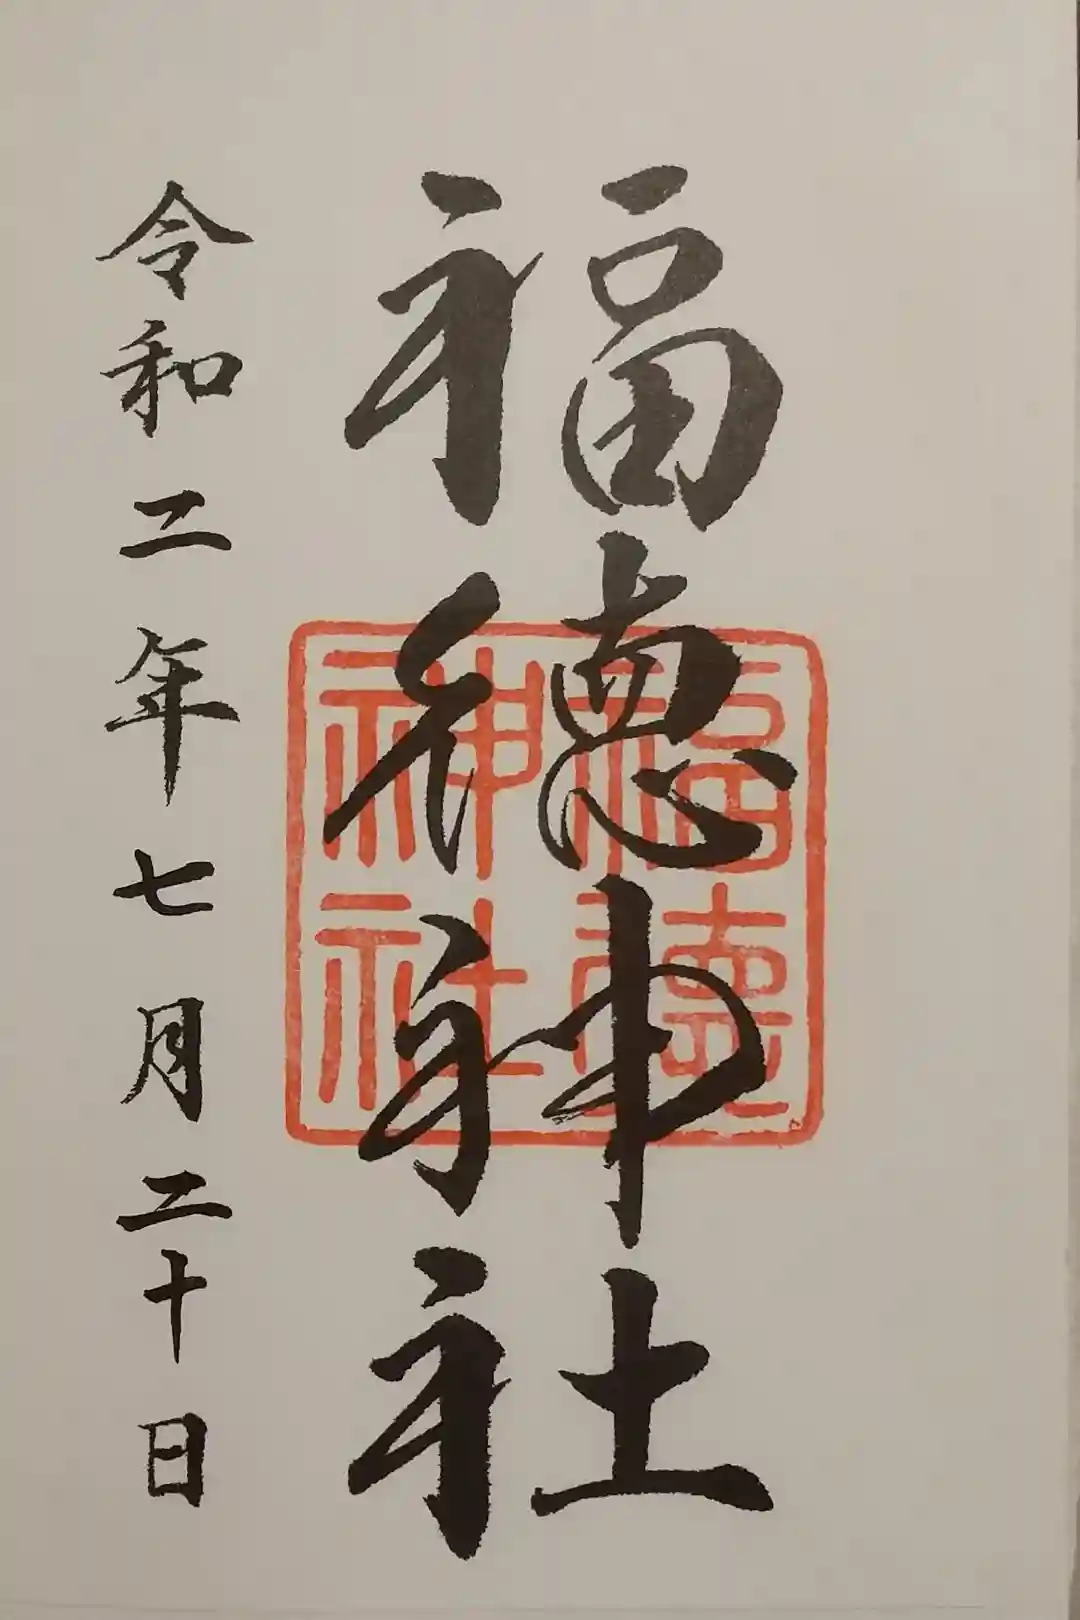 福徳神社
福徳神社
令和二年七月二十日